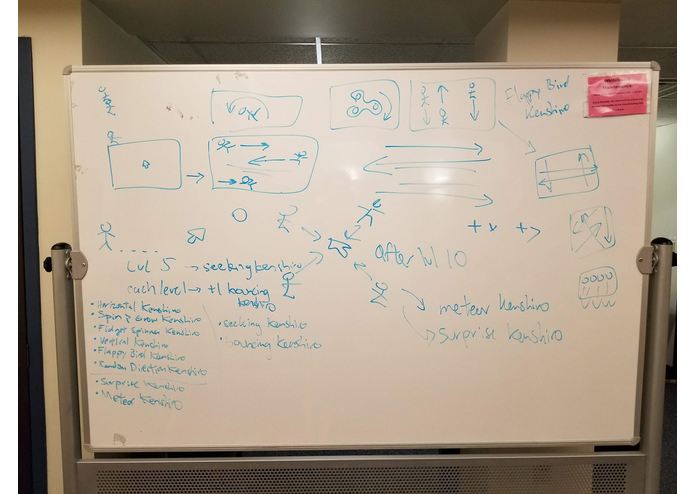 Flappy Bird
Kenshiro
+ v + >
after lvl 10
Lvl 5 → seeking kenshiro
each level → +1 bouncing
kenshiro
→ meteor kenshiro
→ surprise kenshiro
• Horizontal Kenshiro
• Fidget Spinner Kenshiro
• Vertical Kenshiro
• Flappy Bird Kenshiro
• Random Direction Kenshiro
• Surprise Kenshiro
• Meteor Kenshiro
• seeking kenshiro
• bouncing Kenshiro